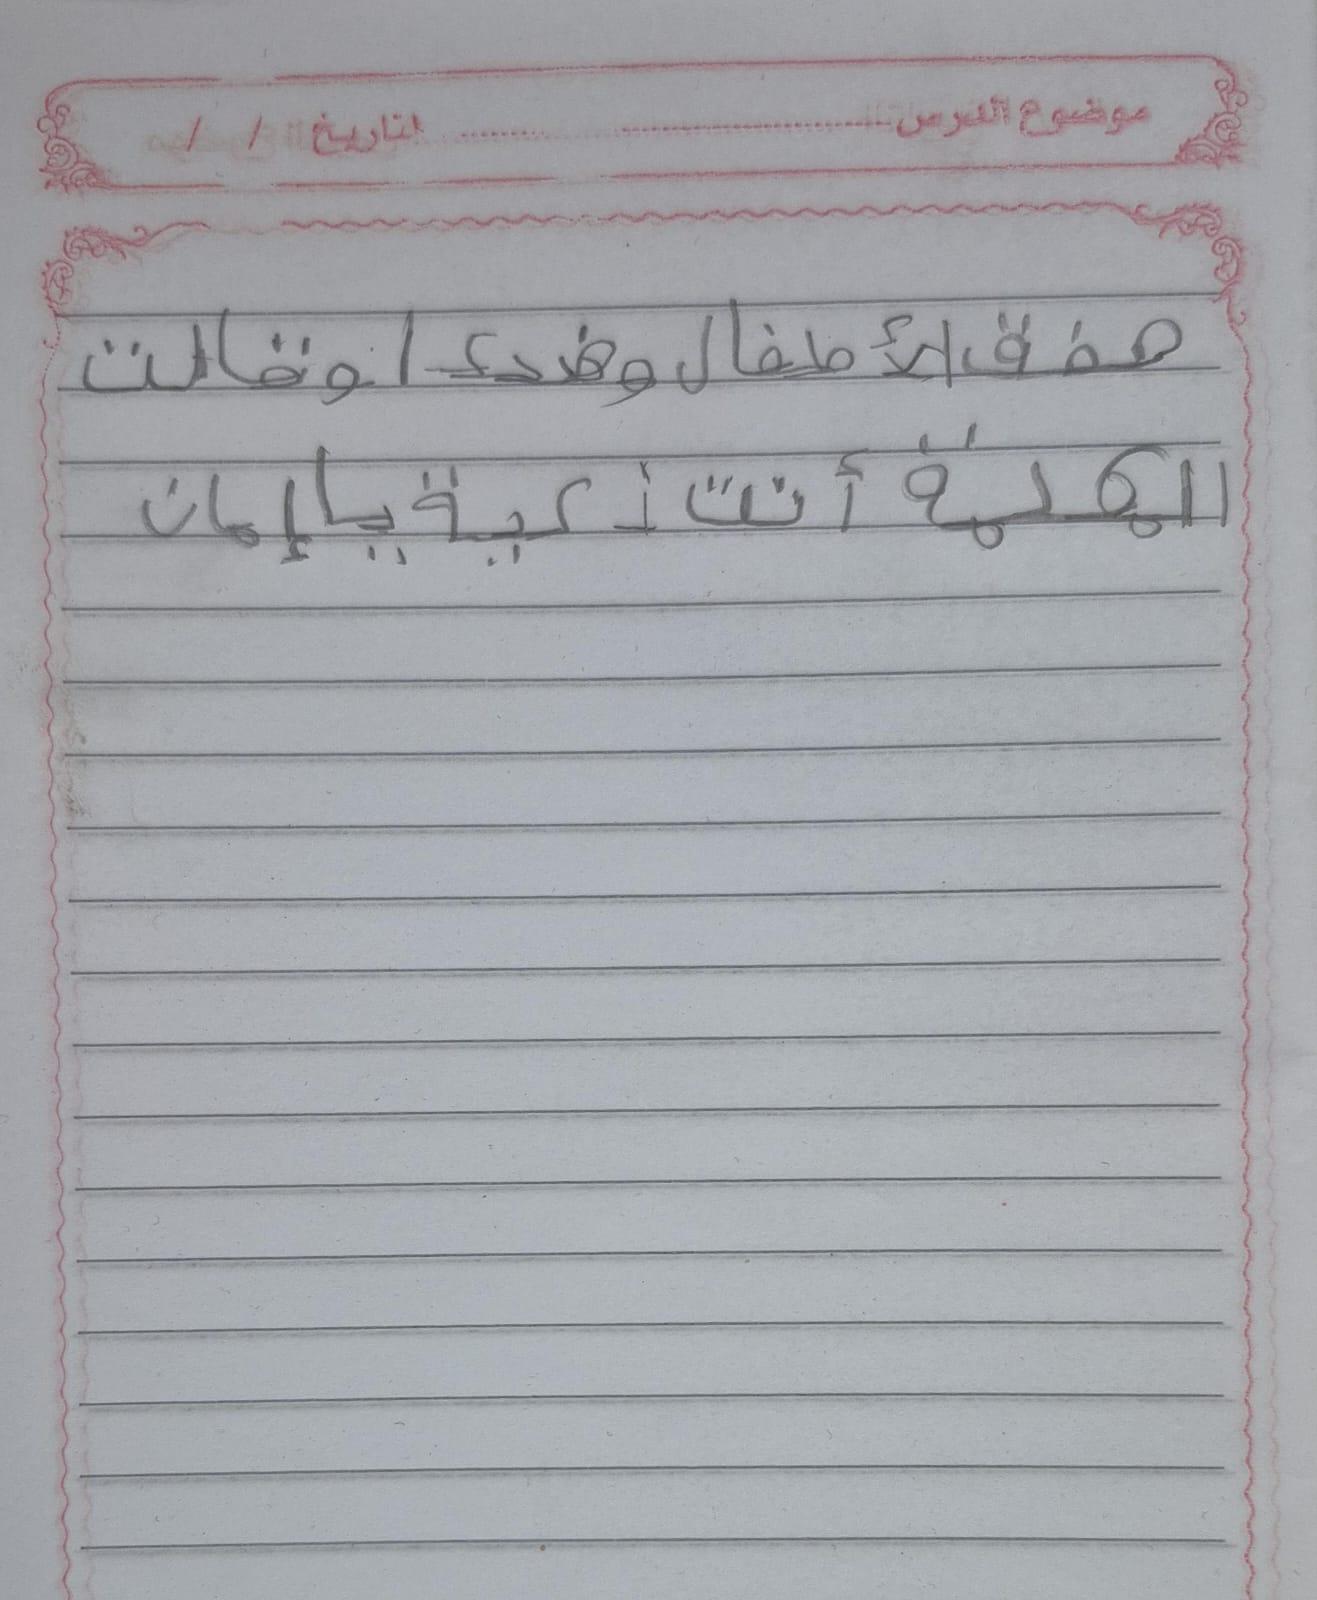 موضوع الدرس التاريخ / /
صفق الأطفال وضحكوا وقالت
المعلمة أنت ذكية يا إيمان